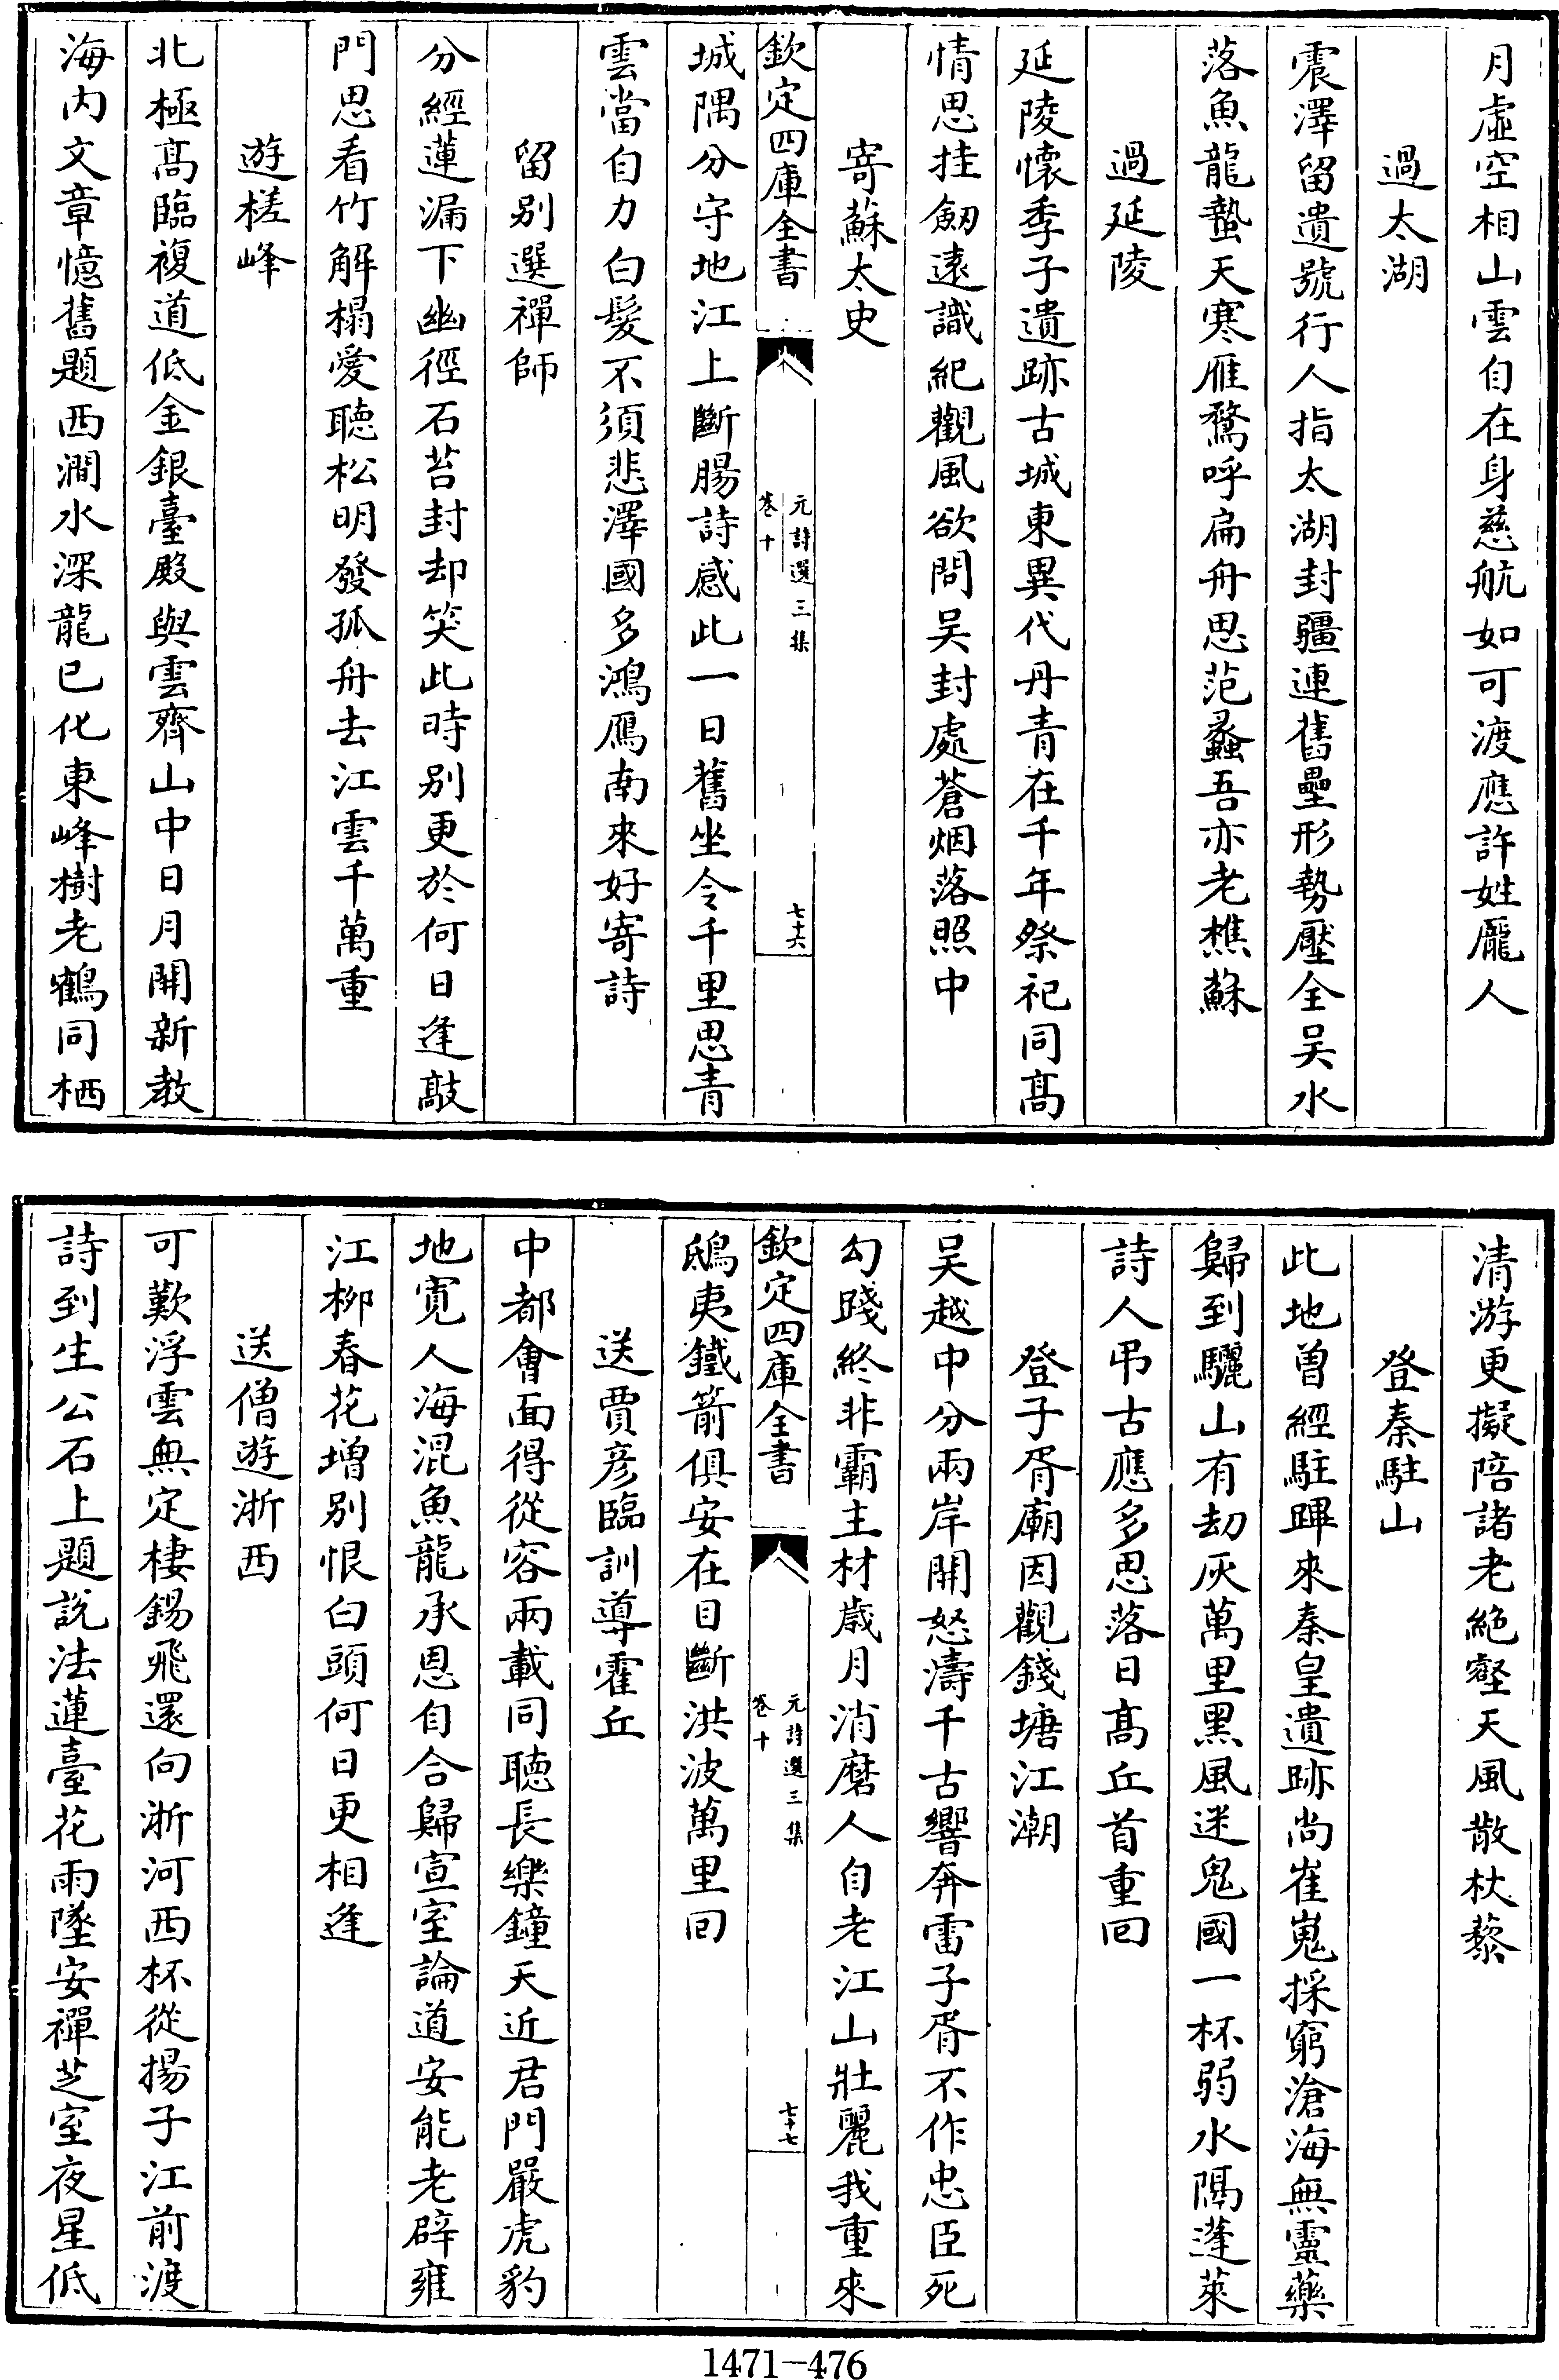 月虛空相山雲自在身慈航如可渡應許姓龐人
過太湖
震澤留遺號行人指太湖封疆連舊壘形勢壓全吴水
落魚龍蟄天寒雁鶩呼扁舟思范蠡吾亦老樵蘇
過延陵
延陵懷季子遺跡古城東異代丹青在千年祭祀同髙
情思挂劒遠識紀觀風欲問吴封處蒼烟落照中
寄蘇太史
欽定四庫全書
元詩選三集
卷十
七十六
城隅分守地江上斷腸詩感此一日舊坐令千里思青
雲當自力白髮不須悲澤國多鴻鴈南來好寄詩
留别選禪師
分經蓮漏下幽徑石苔封却笑此時别更於何日逢敲
門思看竹解榻愛聽松明發孤舟去江雲千萬重
遊槎峰
北極髙臨複道低金銀臺殿與雲齊山中日月開新教
海内文章憶舊題西澗水深龍已化東峰樹老鶴同栖
清游更擬陪諸老絶壑天風散杖藜
登秦駐山
此地曽經駐蹕來秦皇遺跡尚崔嵬採窮滄海無靈藥
歸到驪山有刼灰萬里黒風迷鬼國一杯弱水隔蓬萊
詩人弔古應多思落日髙丘首重回
登子胥廟因觀錢塘江潮
吴越中分兩岸開怒濤千古響奔雷子胥不作忠臣死
勾踐終非霸主材歳月消磨人自老江山壯麗我重來
欽定四庫全書
元詩選三集
卷十
七十七
鴟夷鐵箭俱安在目斷洪波萬里回
送賈彦臨訓導霍丘
中都會面得從容兩載同聽長樂鐘天近君門嚴虎豹
地寛人海混魚龍承恩自合歸宣室論道安能老辟雍
江栁春花增别恨白頭何日更相逢
送僧遊浙西
可歎浮雲無定棲錫飛還向浙河西杯從揚子江前渡
詩到生公石上題説法蓮臺花雨墜安禪芝室夜星低
1471-476